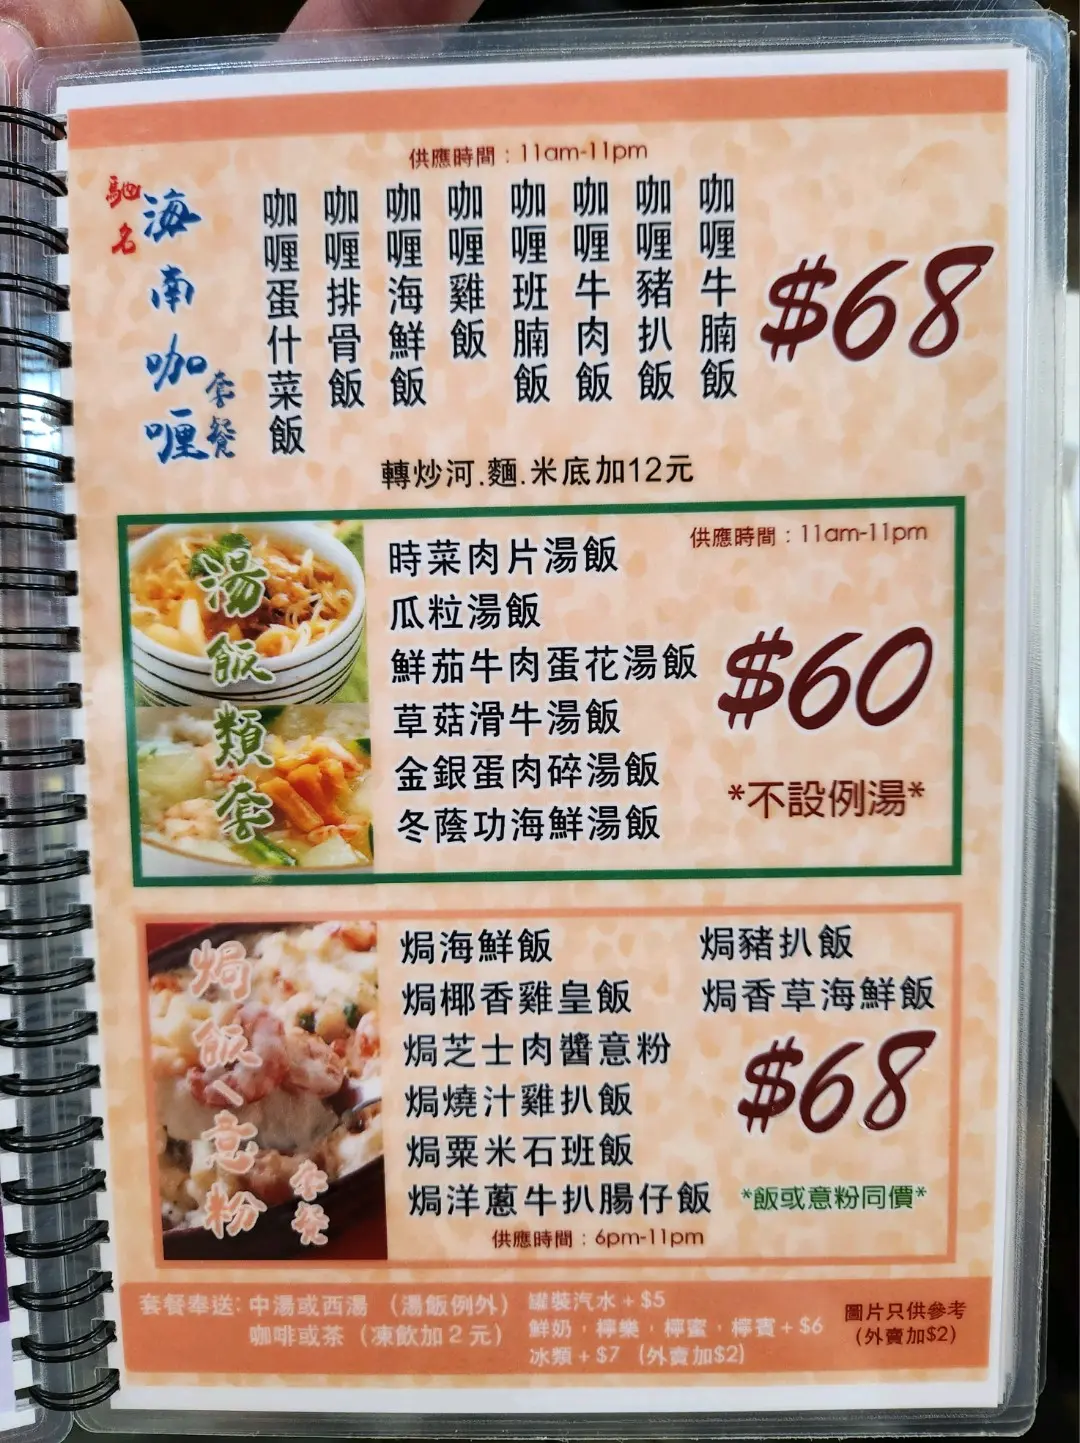 供應時間：11am-11pm
馳名
海南咖喱
套餐
咖喱牛腩飯
咖喱豬扒飯
咖喱牛肉飯
咖喱班腩飯
咖喱雞飯
咖喱海鮮飯
咖喱排骨飯
咖喱蛋什菜飯
$68
轉炒河.麵.米底加12元
湯飯類套
供應時間：11am-11pm
時菜肉片湯飯
瓜粒湯飯
鮮茄牛肉蛋花湯飯
草菇滑牛湯飯
金銀蛋肉碎湯飯
冬蔭功海鮮湯飯
$60
*不設例湯*
焗飯、意粉
套餐
焗海鮮飯
焗椰香雞皇飯
焗芝士肉醬意粉
焗燒汁雞扒飯
焗粟米石班飯
焗洋蔥牛扒腸仔飯
焗豬扒飯
焗香草海鮮飯
$68
*飯或意粉同價*
供應時間：6pm-11pm
套餐奉送：中湯或西湯（湯飯例外）
咖啡或茶（凍飲加2元）
罐裝汽水+$5
鮮奶，檸樂，檸蜜，檸賓+$6
冰類+$7（外賣加$2）
圖片只供參考
（外賣加$2）